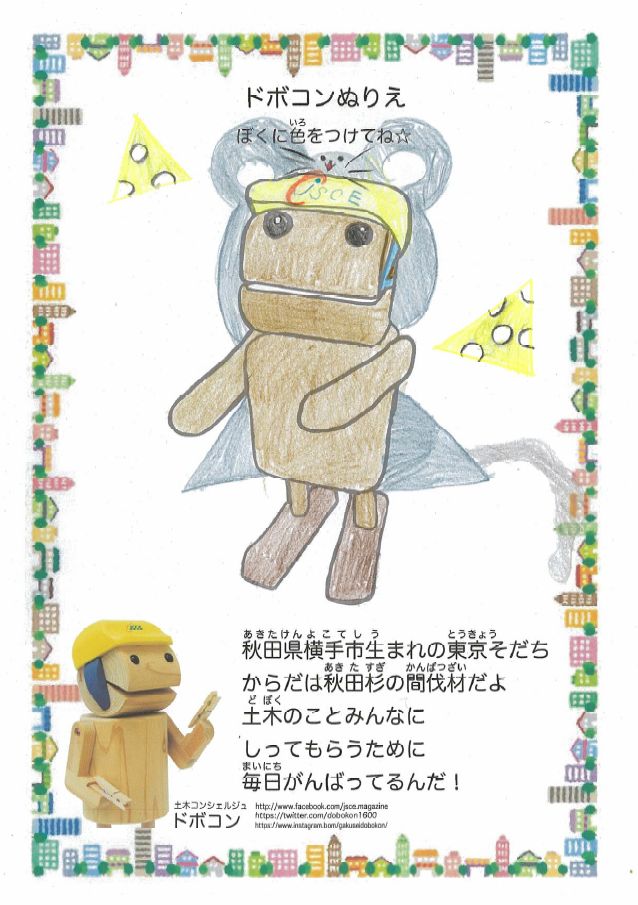 ドボコンぬりえ
いろ
ぼくに色をつけてね☆
JSCE
あきたけんよこてしう とうきょう
秋田県横手市生まれの東京そだち
あきた すぎ かんばつざい
からだは秋田杉の間伐材だよ
どぼく
土木のことみんなに
しってもらうために
まいにち
毎日がんばってるんだ！
土木コンシェルジュ
ドボコン
http://www.facebook.com/jsce.magazine
https://twitter.com/dobokon1600
https://www.instagram.bom/gakuseidobokon/